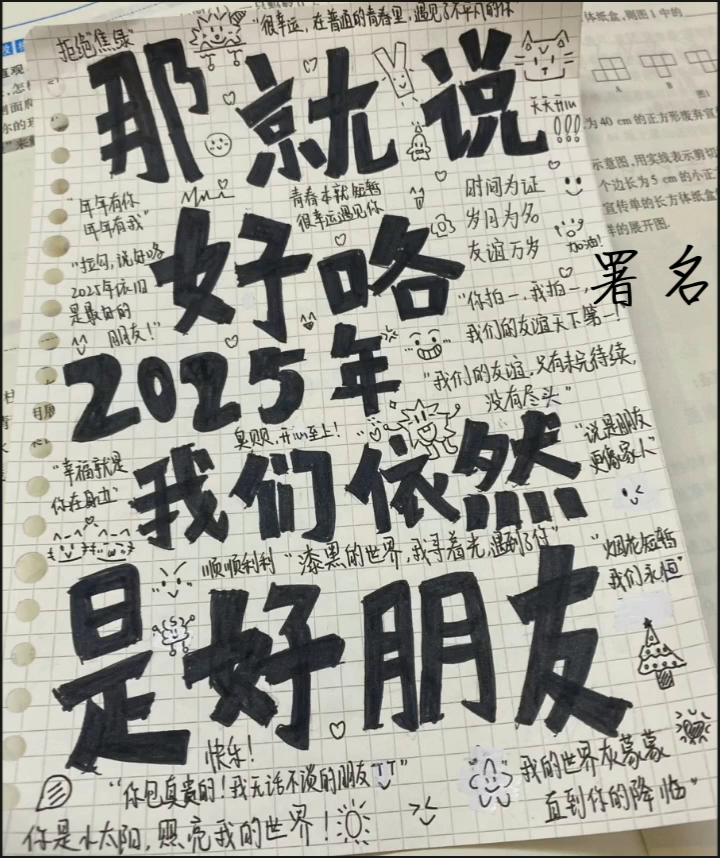 "很幸运，在普通的青春里，遇见了不平凡的你"
拒绝"焦绿"
那就说
天天开iu
!!!
"年年有你
年年有我"
青春本就短暂
很幸运遇见你
时间为证
岁月为名
友谊万岁
加油!
好咯
"拉勾，说好咯
2025年依旧
是最好的
朋友!"
署名
"你拍一，我拍一，
我们的友谊天下第一!
"我们的友谊，只有未完待续，
没有尽头"
2025年
开iu至上!
"说是朋友
更像家人"
"幸福就是
你在身边"
我们依然
顺顺利利
"漆黑的世界，我寻着光，遇到了你"
"烟花短暂
我们永恒"
是好朋友
快乐!
"你包真贵的!我无话不谈的朋友
你是小太阳，照亮我的世界!
我的世界灰蒙蒙
直到你的降临"
体纸盒，则图1中的
A
B
图1
为40 cm的正方形废弃宣
示意图，用实线表示剪切
个边长为5 cm的小正
宣传单的长方体纸盒
样的展开图.